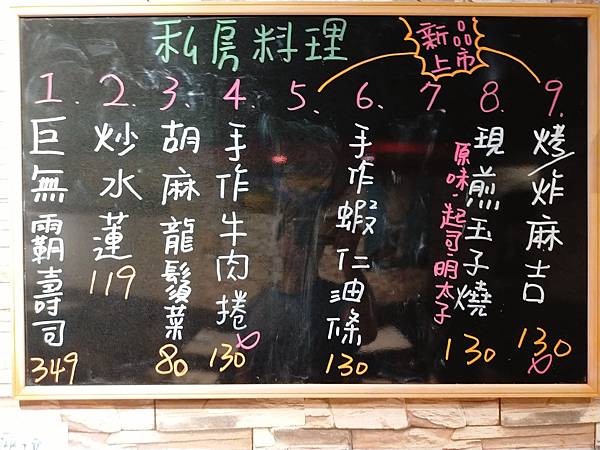 私房料理
新品上市
1. 巨無霸壽司 349
2. 炒水蓮 119
3. 胡麻龍鬚菜 80
4. 手作牛肉捲 130
5.
6. 手作蝦仁油條 130
7.
8. 現煎玉子燒 130
原味.起司.明太子
9. 烤/炸麻吉 130